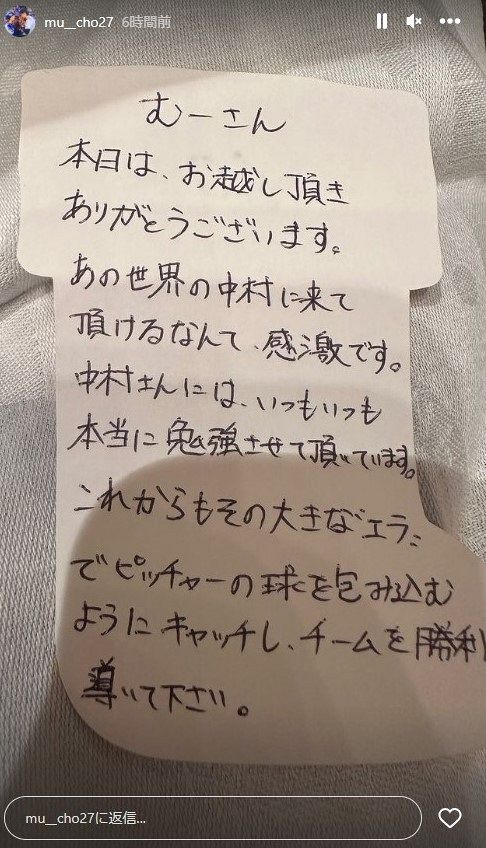 mu__cho27 6時間前
むーさん
本日は、お越し頂き
ありがとうございます。
あの世界の中村に来て
頂けるなんて、感激です。
中村さんには、いつもいつも
本当に勉強させて頂いています。
これからもその大きなエラ
でピッチャーの球を包み込む
ようにキャッチし、チームを勝利
導いて下さい。
mu__cho27に返信...